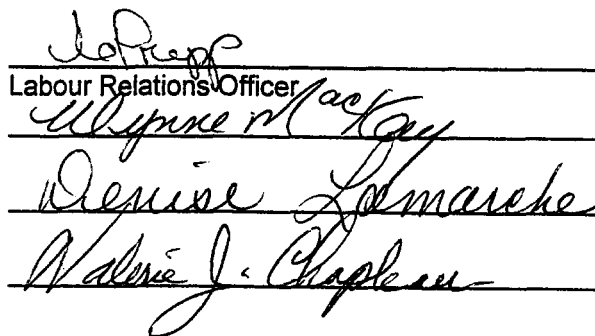 Labour Relations Officer
Wynne MacKay
Denise Lamarche
Valerie J. Chapleau